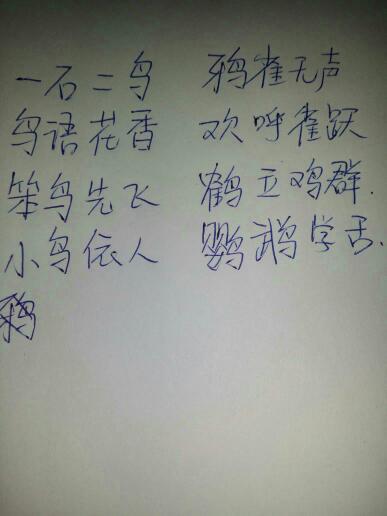 一石二鸟 鸦雀无声
鸟语花香 欢呼雀跃
笨鸟先飞 鹤立鸡群.
小鸟依人 鹦鹉学舌.
鸦